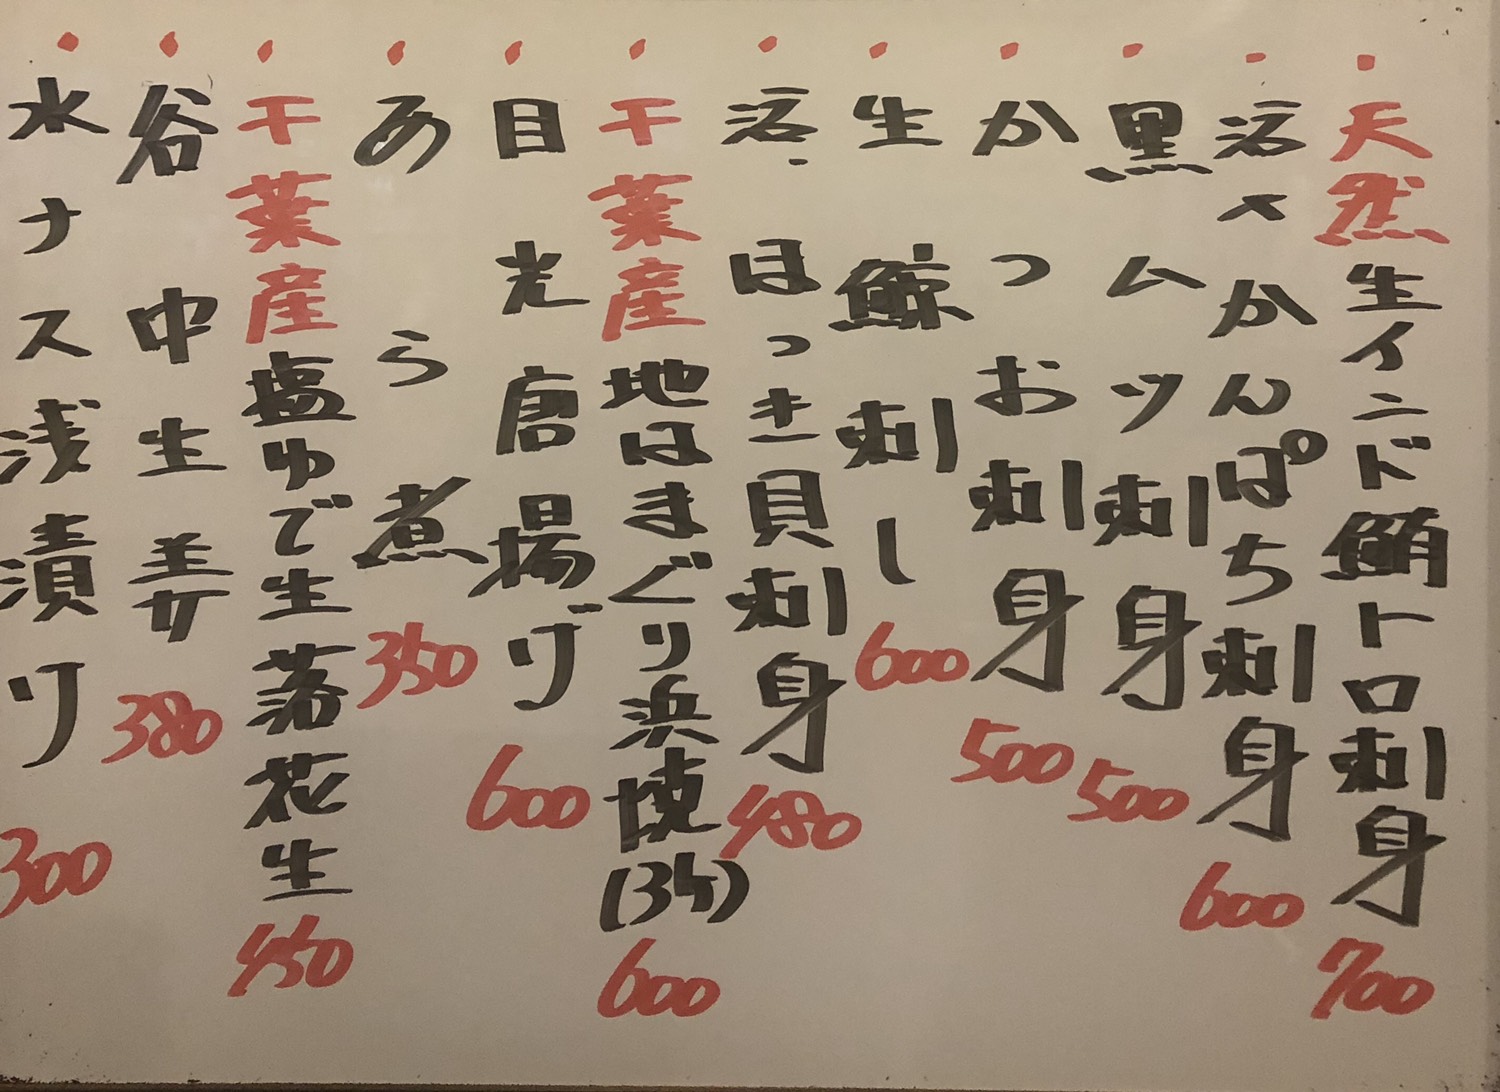 ・天然生インド鮪トロ刺身 700
・活〆かんぱち刺身 600
・黒ムツ刺身 500
・かつお刺身 500
・生鯨刺し 600
・活ほっき貝刺身 480
・千葉産地はまぐり浜焼(3ケ) 600
・目光唐揚げ 600
・あら煮 350
・千葉産塩ゆで生落花生 450
・谷中生姜 380
・水ナス浅漬り 300